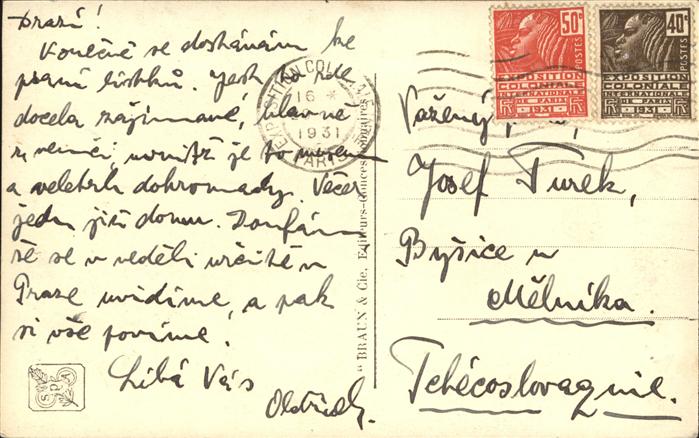 Drazí!
Konečně se dostávám ke
psaní lístků. Jest to zde
docela zajímavé, hlavně
večer
jedu již domů. Doufám
že se v neděli určitě v
Praze uvidíme, a pak
si vše povíme.
Líbá Vás
Oldřich.
"BRAUN & Cie, Editeurs-Concessionnaires
EXPOSITION COLONIALE
16 *
1931
PARIS
50c
POSTES
EXPOSITION
COLONIALE
INTERNATIONALE
DE PARIS
RF 1931 RF
40c
POSTES
EXPOSITION
COLONIALE
INTERNATIONALE
DE PARIS
RF 1931 RF
Vážený
Josef Turek,
Byšice u
Mělníka.
Tchécoslovaquie.